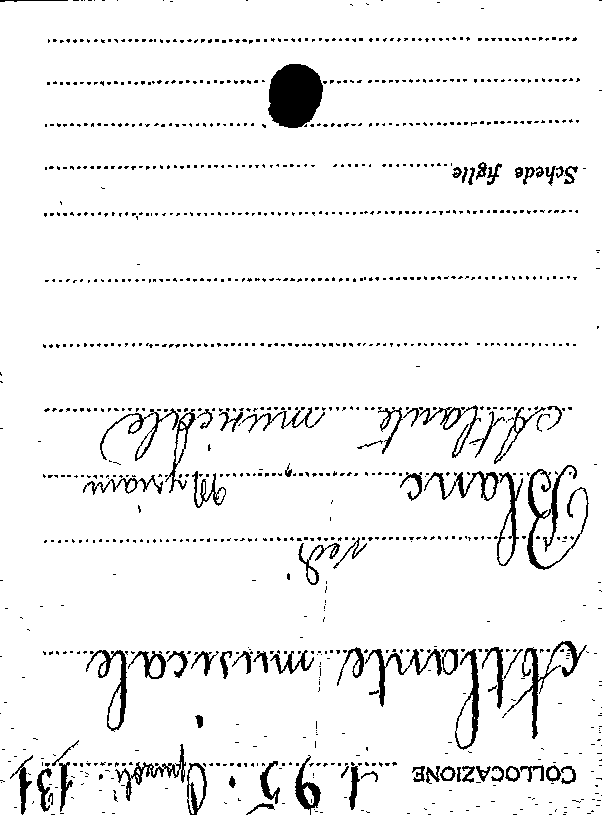 COLLOCAZIONE 1. 95. Opuscoli. 131
Atlante musicale
vedi
Blanc Myriam
Atlante musicale
Schede figlie